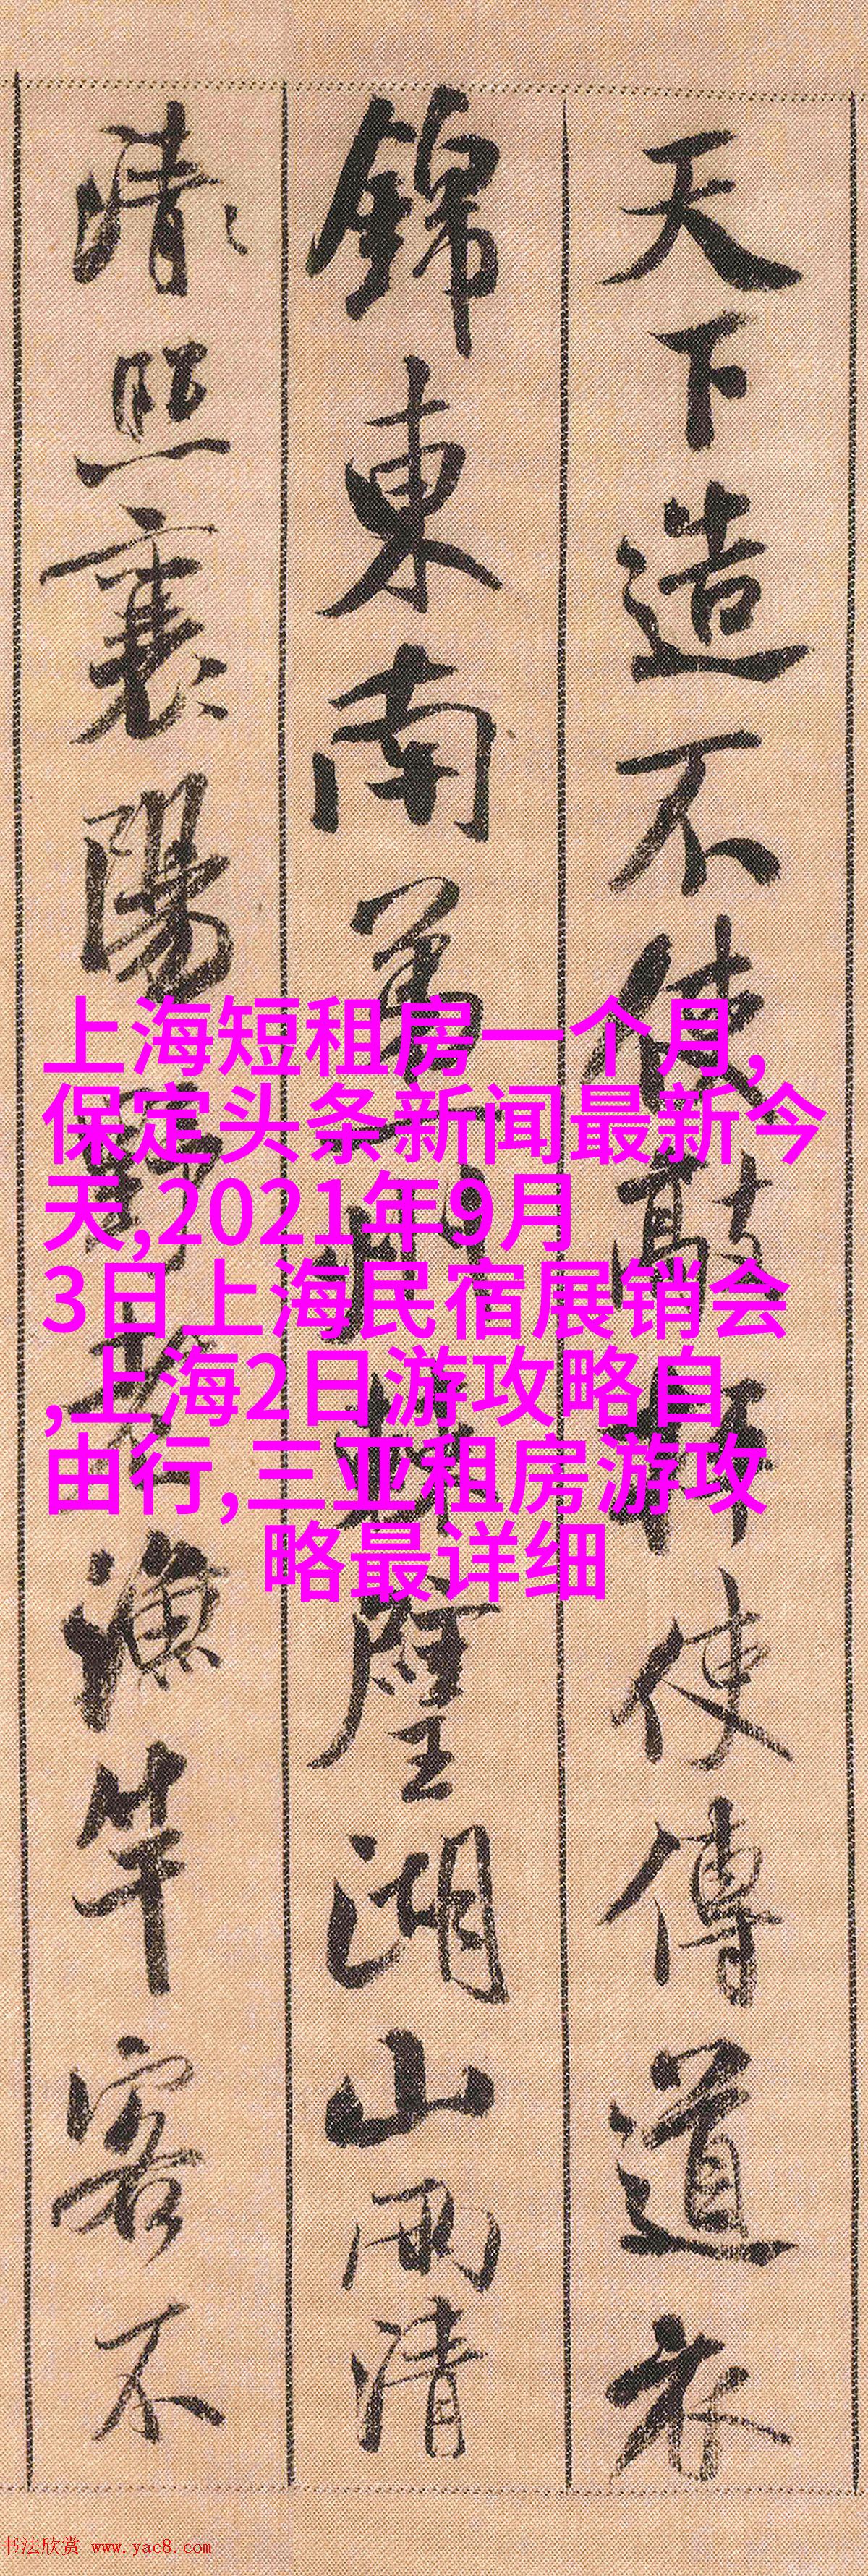 天下造不使敲枰使傳道衣
錦東南第一州棘璧湖山兩清
清照襄陽野老漁竿客不
上海短租房一个月,
保定头条新闻最新今
天,2021年9月
3日上海民宿展销会
,上海2日游攻略自
由行,三亚租房游攻
略最详细
书法欣赏 www.yac8.com